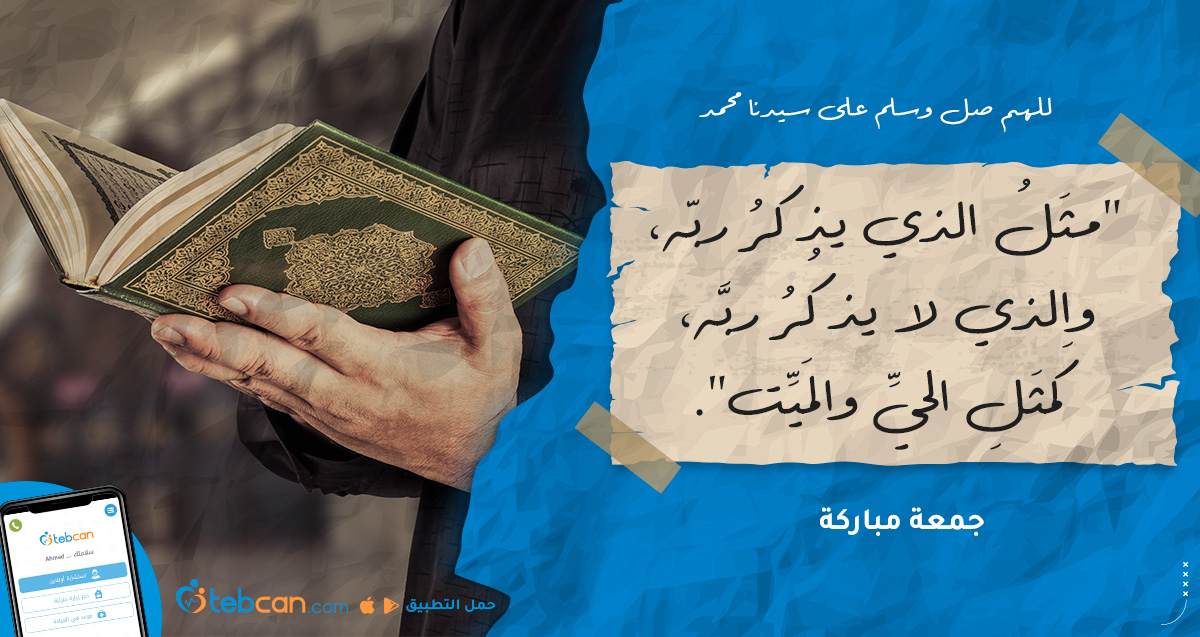 للهم صل وسلم على سيدنا محمد
"مثَلُ الذي يذكرُ ربّه،
والذي لا يذكرُ ربَّه،
كمثَلِ الحيِّ والميِّت".
جمعة مباركة
حمل التطبيق
tebcan.com
tebcan
سلامتك ... Ahmad
استشارة أونلاين
حجز زيارة منزلية
موعد في العيادة